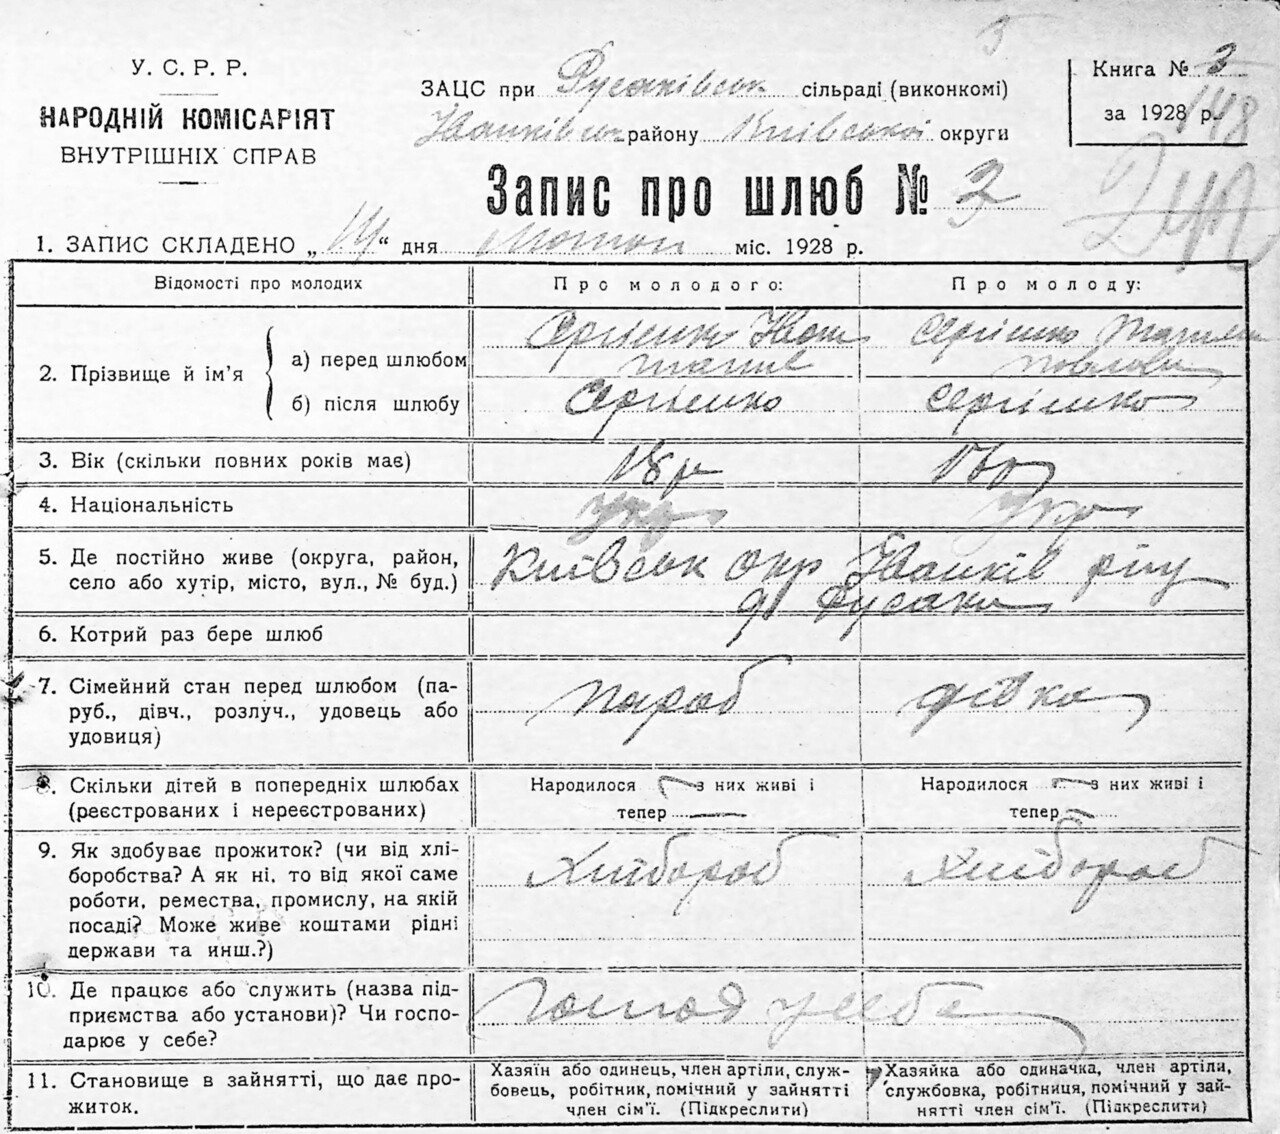 У. С. Р. Р.
НАРОДНІЙ КОМІСАРІЯТ
ВНУТРІШНІХ СПРАВ
ЗАЦС при Русаківськ сільраді (виконкомі)
Іванківськ району Київської округи
Книга № 3
за 1928 р.
148
Запис про шлюб № 3
1. ЗАПИС СКЛАДЕНО „ “ дня міс. 1928 р.
Відомості про молодих
Про молодого:
Про молоду:
2. Прізвище й ім’я
а) перед шлюбом
Сергієнко Іван
Сергієнко
б) після шлюбу
Сергієнко
Сергієнко
3. Вік (скільки повних років має)
18 р
4. Національність
Укр
Укр
5. Де постійно живе (округа, район,
село або хутір, місто, вул., № буд.)
Київськ окр Іванків р-ну
Русаки
6. Котрий раз бере шлюб
7. Сімейний стан перед шлюбом (па-
руб., дівч., розлуч., удовець або
удовиця)
Параб
дівка
8. Скільки дітей в попередніх шлюбах
(реєстрованих і нереєстрованих)
Народилося — з них живі і
тепер —
Народилося — з них живі і
тепер —
9. Як здобуває прожиток? (чи від хлі-
боробства? А як ні, то від якої саме
роботи, ремества, промислу, на якій
посаді? Може живе коштами рідні
держави та инш.?)
Хлібороб
Хлібороб
10. Де працює або служить (назва під-
приємства або установи)? Чи госпо-
дарює у себе?
у себе
11. Становище в зайнятті, що дає про-
житок.
Хазяїн або одинець, член артіли, служ-
бовець, робітник, помічний у зайнятті
член сім’ї. (Підкреслити)
Хазяйка або одиначка, член артіли,
службовка, робітниця, помічний у зай-
нятті член сім’ї. (Підкреслити)